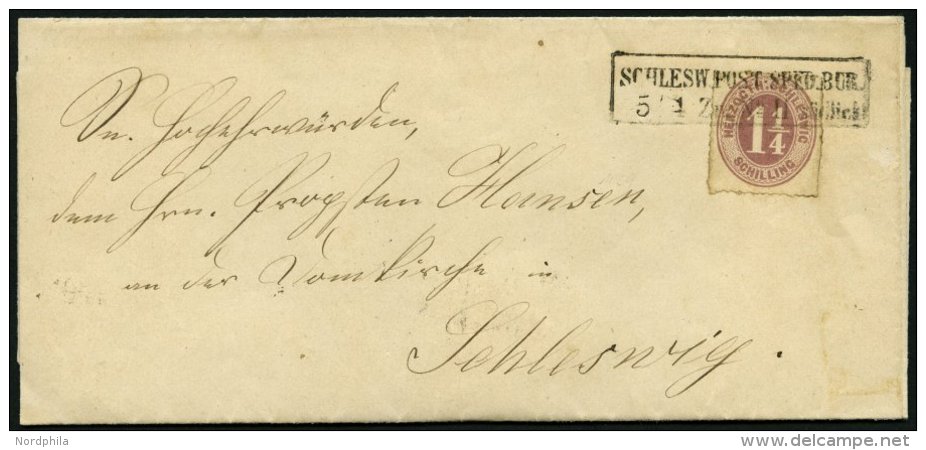 SCHLESW. POST-SPED. BUR.
5/4
HERZOGTH. SCHLESWIG
1¼
SCHILLING
Sr. Hochehrwürden,
dem Hrn. Propsten Hansen,
an der Domkirche in
Schleswig.
Nordphila
delcampe.net